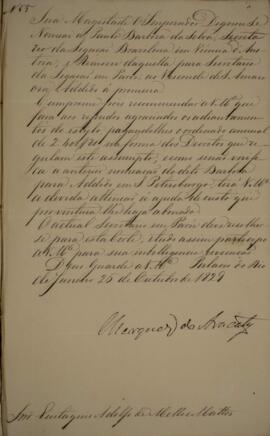 Sua Magestade O Imperador Dignou-Se
Nomear a Paulo Barbosa da Silva, Secreta
rio da Legação Brazileira em Vienna d'Aus
tria; e Remover daquella para Secretario
da Legação em Paris ao Visconde de S. Amaro
Addido á primeira.
Cumpre-me pois recommendar a V. Mce que
faça aos referidos agraciados o adiantamento
do estylo pagando-lhes o ordenado annual
de na forma dos Decretos que re
gulam este assumpto; e como
a anterior nomeação do dito Barbosa
para Addido em S. Petersburgo, terá V. Mce
a devida attenção a ajuda de custo que
porventura lhe haja abonado.
O actual Secretario em Paris deve recolher
se para esta Corte, e tudo assim participo
a V. Mce para sua intelligencia e execução
Deos Guarde a V. Mce Palacio do Rio
de Janeiro 26 de Outubro de 1829
Marquez de Aracaty
Snr Eustaquio Adolfo de Mello Mattos